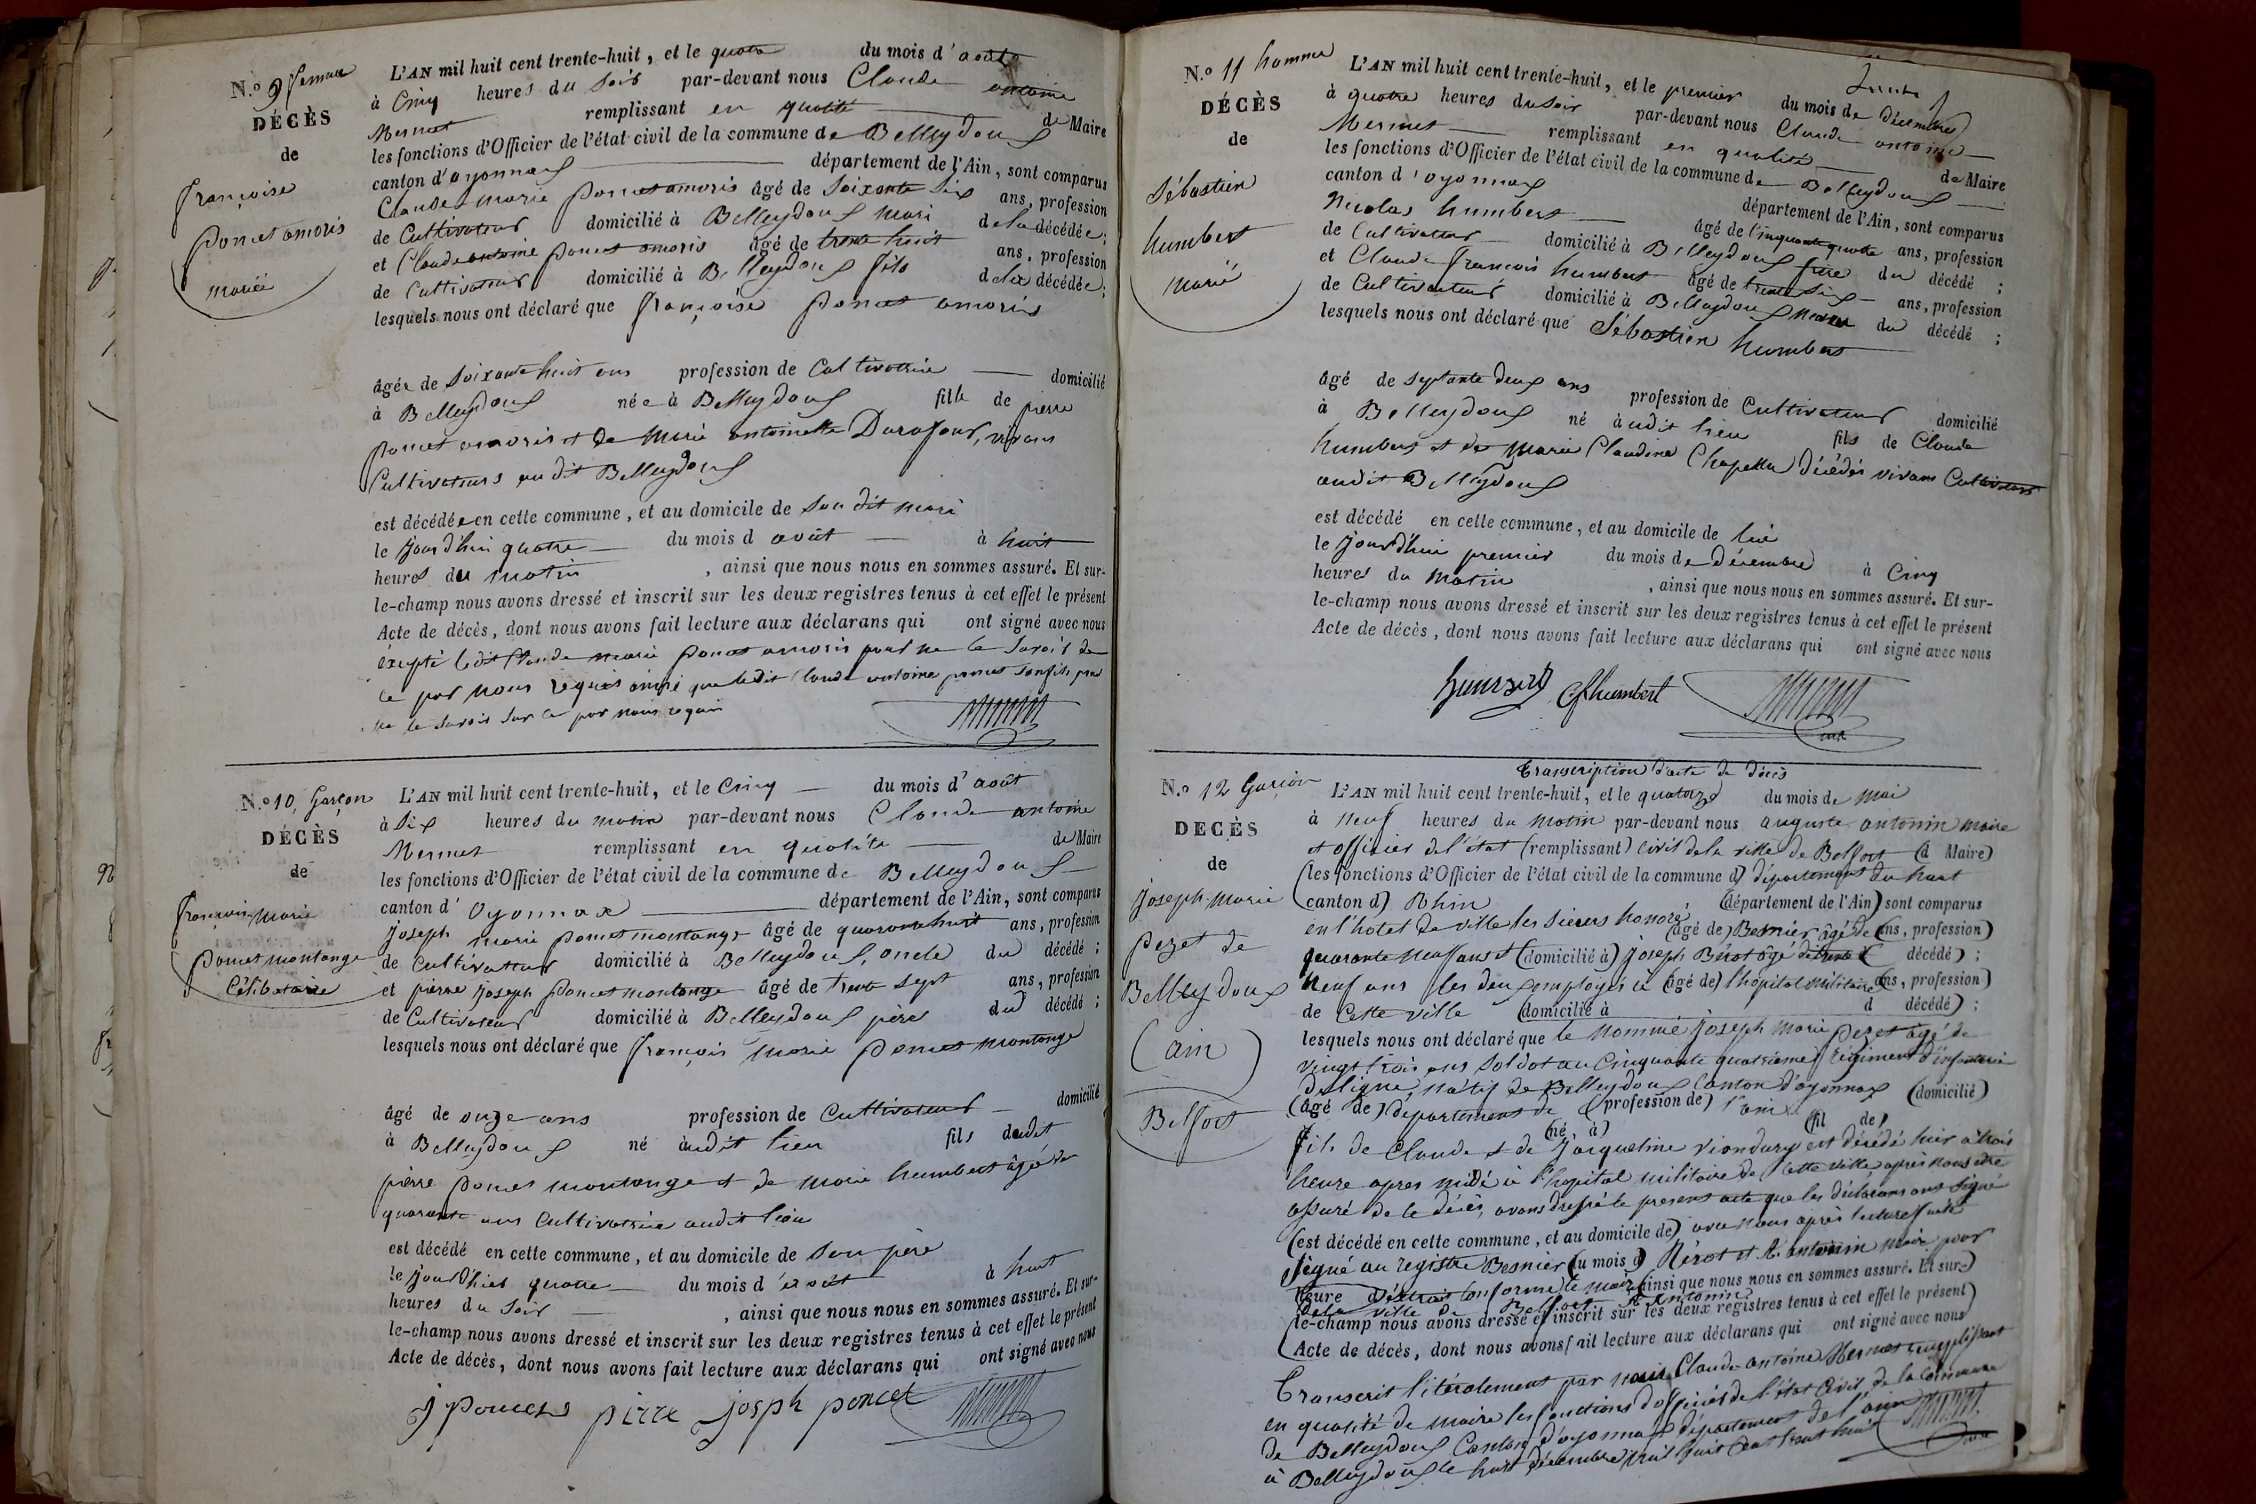 N.o 9 femme
DÉCÈS
de
françoise
poncet amoris
mariée
L'AN mil huit cent trente-huit, et le quatre du mois d'août
à Cinq heures du soir par-devant nous Claude antoine
Mermet remplissant en qualité de Maire
les fonctions d'Officier de l'état civil de la commune de Belleydoux
canton d'oyonnax département de l'Ain, sont comparus
Claude marie poncet amoris âgé de soixante six ans, profession
de Cultivateur domicilié à Belleydoux mari de la décédée;
et Claude antoine poncet amoris âgé de trente huit ans, profession
de Cultivateur domicilié à Belleydoux fils de la décédée;
lesquels nous ont déclaré que françoise poncet amoris
âgée de soixante huit ans profession de Cultivatrice domicilié
à Belleydoux née à Belleydoux fille de pierre
poncet amoris et de Marie antoinette Durafour, vivans
Cultivateurs au dit Belleydoux
est décédée en cette commune, et au domicile de son dit mari
le jourd'hui quatre du mois d août à huit
heures du matin, ainsi que nous nous en sommes assuré. Et sur-
le-champ nous avons dressé et inscrit sur les deux registres tenus à cet effet le présent
Acte de décès, dont nous avons fait lecture aux déclarans qui ont signé avec nous
éxepté ledit Claude marie poncet amoris pour ne le savoir de
ce par nous requis ainsi que ledit Claude antoine poncet son fils pour
ne le savoir sur ce par nous requis
N.o 10, Garçon
DÉCÈS
de
françois marie
poncet montange
Célibataire
L'AN mil huit cent trente-huit, et le Cinq du mois d'août
à Six heures du matin par-devant nous Claude antoine
Mermet remplissant en qualité de Maire
les fonctions d'Officier de l'état civil de la commune de Belleydoux
canton d'Oyonnax département de l'Ain, sont comparus
Joseph marie poncet montange âgé de quarante huit ans, profession
de Cultivateur domicilié à Belleydoux, oncle du décédé;
et pierre joseph poncet montange âgé de trente sept ans, profession
de Cultivateur domicilié à Belleydoux père du décédé;
lesquels nous ont déclaré que françois marie poncet montange
âgé de onze ans profession de Cultivateur domicilié
à Belleydoux né audit lieu fils dudit
pierre poncet montange et de marie humbert âgée de
quarante ans Cultivatrice audit lieu
est décédé en cette commune, et au domicile de son père
le jour d'hier quatre du mois d'août à huit
heures du soir, ainsi que nous nous en sommes assuré. Et sur-
le-champ nous avons dressé et inscrit sur les deux registres tenus à cet effet le présent
Acte de décès, dont nous avons fait lecture aux déclarans qui ont signé avec nous
j poncet pierre joseph poncet
N.o 11 homme
DÉCÈS
de
Sébastien
humbert
marié
L'AN mil huit cent trente-huit, et le premier du mois de décembre
à quatre heures du soir par-devant nous Claude antoine
Mermet remplissant en qualité de Maire
les fonctions d'Officier de l'état civil de la commune de Belleydoux
canton d'oyonnax département de l'Ain, sont comparus
Nicolas humbert âgé de Cinquante quatre ans, profession
de Cultivateur domicilié à Belleydoux frère du décédé;
et Claude françois humbert âgé de trente six ans, profession
de Cultivateur domicilié à Belleydoux neveu du décédé;
lesquels nous ont déclaré que Sébastien humbert
âgé de septante deux ans profession de Cultivateur domicilié
à Belleydoux né audit lieu fils de Claude
humbert et de Marie Claudine Chapelu décédés vivans Cultivateurs
audit Belleydoux
est décédé en cette commune, et au domicile de lui
le jourd'hui premier du mois de décembre à Cinq
heures du matin, ainsi que nous nous en sommes assuré. Et sur-
le-champ nous avons dressé et inscrit sur les deux registres tenus à cet effet le présent
Acte de décès, dont nous avons fait lecture aux déclarans qui ont signé avec nous
humbert Cfhumbert
N.o 12 Garçon
DECÈS
de
joseph marie
pezet de
Belleydoux
(ain)
Belfort
Transcription d'acte de décès
L'AN mil huit cent trente-huit, et le quatorze du mois de mai
à neuf heures du matin par-devant nous auguste antonin maire
et officier de l'état (remplissant) civil de la ville de Belfort (d Maire)
(les fonctions d'Officier de l'état civil de la commune d) département du haut
(canton d) Rhin (département de l'Ain) sont comparus
en l'hotel de ville les sieurs honoré (âgé de) Besnier âgé de (ans, profession)
quarante neuf ans et (domicilié à) joseph Bérot âgé de trente (décédé);
neuf ans les deux employés à (âgé de) l'hopital militaire (ans, profession)
de cette ville (domicilié à d décédé);
lesquels nous ont déclaré que le nommé joseph marie pezet âgé de
vingt trois ans soldat au Cinquante quatrième régiment d'infanterie
de ligne, natif de Belleydoux Canton d'oyonnax (domicilié)
(âgé de) département de (profession de) l'ain
(né à) (fil de)
fils de Claude et de Jacqueline Viondury est décédé hier à trois
heure apres midi à l'hopital militaire de cette ville, après nous être
assuré de le décès, avons dressé le present acte que les déclarans ont signé
(est décédé en cette commune, et au domicile de) avec nous après lecture faite
signé au registre Besnier (du mois d) Bérot et A. antonin maire pour
(heure d) extrait conforme le maire (ainsi que nous nous en sommes assuré. Et sur-)
de la ville de Belfort A Antonin
(le-champ nous avons dressé et inscrit sur les deux registres tenus à cet effet le présent)
(Acte de décès, dont nous avons fait lecture aux déclarans qui ont signé avec nous
Transcrit litéralement par nous Claude antoine Mermet remplissant
en qualité de maire les fonctions d'officier de l'état Civil de la Commune
de Belleydoux Canton d'oyonnax département de l'ain
à Belleydoux le huit décembre mil huit cent trente huit